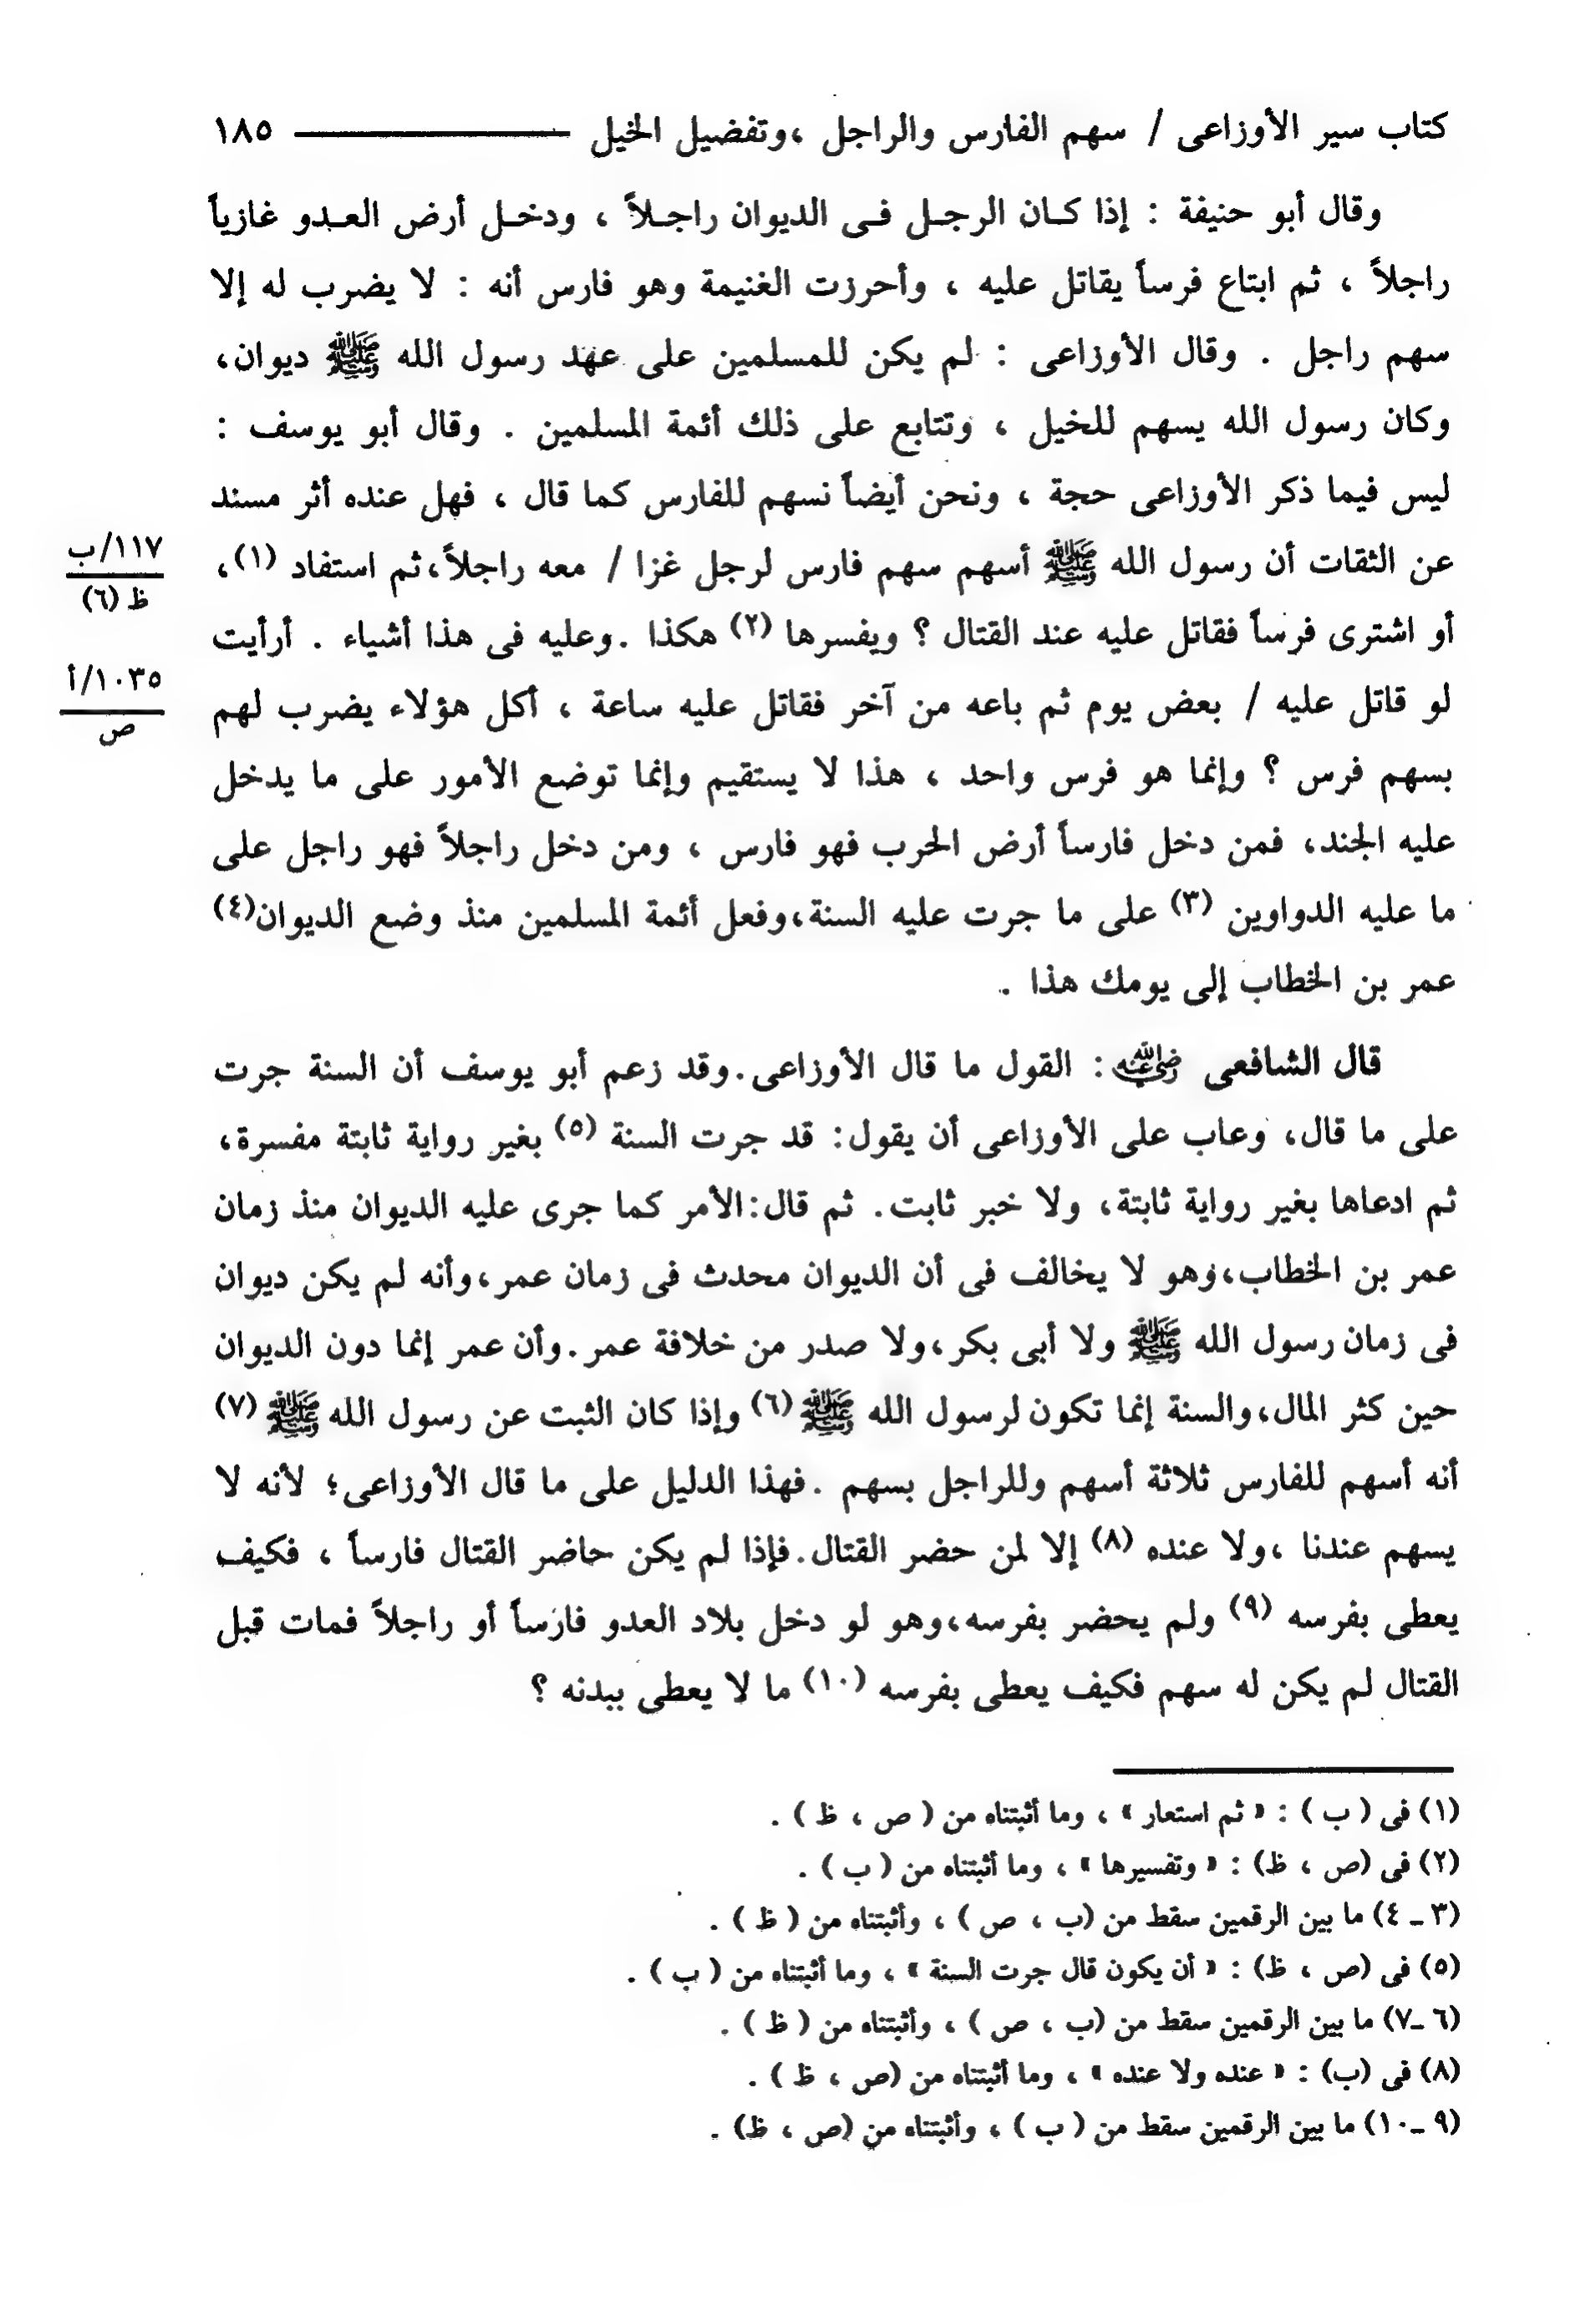 كتاب سير الأوزاعى / سهم الفارس والراجل ،وتفضيل الخيل ١٨٥
وقال أبو حنيفة : إذا كـان الرجـل فـى الديوان راجـلاً ، ودخـل أرض العـدو غازياً
راجلاً ، ثم ابتاع فرساً يقاتل عليه ، وأحرزت الغنيمة وهو فارس أنه : لا يضرب له إلا
سهم راجل . وقال الأوزاعى : لم يكن للمسلمين على عهد رسول الله ﷺ ديوان،
وكان رسول الله يسهم للخيل ، وتتابع على ذلك أئمة المسلمين . وقال أبو يوسف :
ليس فيما ذكر الأوزاعى حجة ، ونحن أيضاً نسهم للفارس كما قال ، فهل عنده أثر مسند
عن الثقات أن رسول الله ﷺ أسهم سهم فارس لرجل غزا / معه راجلاً،ثم استفاد (١)،
١١٧/ب
ظ (٦)
أو اشترى فرساً فقاتل عليه عند القتال ؟ ويفسرها (٢) هكذا .وعليه فى هذا أشياء . أرأيت
لو قاتل عليه / بعض يوم ثم باعه من آخر فقاتل عليه ساعة ، أكل هؤلاء يضرب لهم
١٠٣٥/أ
ص
بسهم فرس ؟ وإنما هو فرس واحد ، هذا لا يستقيم وإنما توضع الأمور على ما يدخل
عليه الجند، فمن دخل فارساً أرض الحرب فهو فارس ، ومن دخل راجلاً فهو راجل على
ما عليه الدواوين (٣) على ما جرت عليه السنة،وفعل أئمة المسلمين منذ وضع الديوان(٤)
عمر بن الخطاب إلى يومك هذا .
قال الشافعى رضي الله عنه : القول ما قال الأوزاعى.وقد زعم أبو يوسف أن السنة جرت
على ما قال، وعاب على الأوزاعى أن يقول: قد جرت السنة (٥) بغير رواية ثابتة مفسرة،
ثم ادعاها بغير رواية ثابتة، ولا خبر ثابت. ثم قال:الأمر كما جرى عليه الديوان منذ زمان
عمر بن الخطاب،وهو لا يخالف فى أن الديوان محدث فى زمان عمر،وأنه لم يكن ديوان
فى زمان رسول الله ﷺ ولا أبى بكر،ولا صدر من خلافة عمر.وأن عمر إنما دون الديوان
حين كثر المال،والسنة إنما تكون لرسول الله ﷺ (٦) وإذا كان الثبت عن رسول الله ﷺ (٧)
أنه أسهم للفارس ثلاثة أسهم وللراجل بسهم .فهذا الدليل على ما قال الأوزاعى؛ لأنه لا
يسهم عندنا ،ولا عنده (٨) إلا لمن حضر القتال.فإذا لم يكن حاضر القتال فارساً ، فكيف
يعطى بفرسه (٩) ولم يحضر بفرسه،وهو لو دخل بلاد العدو فارساً أو راجلاً فمات قبل
القتال لم يكن له سهم فكيف يعطى بفرسه (١٠) ما لا يعطى ببدنه ؟
(١) فى ( ب ) : « ثم استعار » ، وما أثبتناه من ( ص ، ظ ) .
(٢) فى (ص ، ظ) : « وتفسيرها » ، وما أثبتناه من ( ب ) .
(٣ ـ ٤) ما بين الرقمين سقط من (ب ، ص ) ، وأثبتناه من ( ظ ) .
(٥) فى (ص ، ظ) : « أن يكون قال جرت السنة » ، وما أثبتناه من ( ب ) .
(٦ ـ٧) ما بين الرقمين سقط من (ب ، ص ) ، وأثبتناه من ( ظ ) .
(٨) فى (ب) : « عنده ولا عنده » ، وما أثبتناه من (ص ، ظ ) .
(٩ ـ١٠) ما بين الرقمين سقط من ( ب ) ، وأثبتناه من (ص ، ظ) .